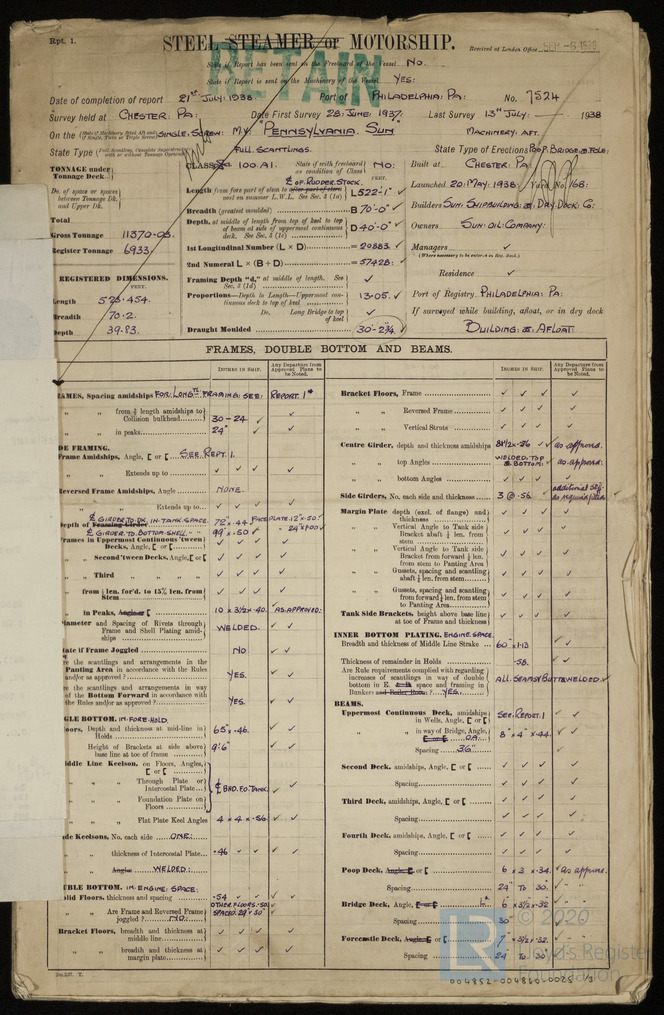 Rpt. 1.
STEEL STEAMER or MOTORSHIP.
Received at London Office SEP -6 1938
State if Report has been sent on the Freeboard of the Vessel No.
State if Report is sent on the Machinery of the Vessel YES:
RETAIN
Date of completion of report 21st JULY: 1938 Port of PHILADELPHIA: PA: No. 7524
Survey held at CHESTER: PA: Date First Survey 28: JUNE: 1937: Last Survey 13th JULY: 1938
On the SINGLE: SCREW: M.V. "PENNSYLVANIA SUN" MACHINERY: AFT.
State Type FULL SCANTLINGS. State Type of Erections POOP: BRIDGE: & F'OLE:
TONNAGE under Tonnage Deck
Do. of space or spaces between Tonnage Dk. and Upper Dk.
Total
Gross Tonnage 11370.03
Register Tonnage 6933.
REGISTERED DIMENSIONS.
FEET.
Length 523.454.
Breadth 70.2
Depth 39.83.
CLASS 100.A1. State if with freeboard as condition of Class NO:
₵ OF RUDDER STOCK.
Length from fore part of stem to after part of stern post on summer L.W.L. See Sec. 3 (1a) L 522'-1"
Breadth (greatest moulded) B 70'-0"
Depth, at middle of length from top of keel to top of beam at side of uppermost continuous deck. See Sec. 3 (1c) D 40'-0"
1st Longitudinal Number (L × D) = 20883.
2nd Numeral L × (B + D) = 57428:
Framing Depth "d," at middle of length. See Sec. 3 (1d)
Proportions—Depth to Length—Uppermost continuous deck to top of keel 13.05.
Do. Long Bridge to top of keel
Draught Moulded 30'-2¾
Built at CHESTER: PA
Launched 20: MAY: 1938: Yard No. 166:
Builders SUN: SHIPBUILDING: & DRY: DOCK: Co:
Owners SUN: OIL: COMPANY:
Managers
(Where necessary to be entered in Reg. Book.)
Residence
Port of Registry PHILADELPHIA: PA:
If surveyed while building, afloat, or in dry dock
BUILDING: & AFLOAT:
FRAMES, DOUBLE BOTTOM AND BEAMS.
INCHES IN SHIP. Any Departure from Approved Plans to be Noted.
AMES, Spacing amidships FOR: LONGTL FRAMING: SEE: REPORT. 1*
" " from ⅗ length amidships to Collision bulkhead 30 - 24
" " in peaks 24"
DE FRAMING.
Frame Amidships, Angle, [ or [ SEE. REPT. 1.
" " Extends up to
Reversed Frame Amidships, Angle NONE.
" " Extends up to
₵ GIRDER TO DK. IN TANK SPACE. 72" × .44. FACE PLATE. 12" × .50"
Depth of Framing Girder
₵ GIRDER TO BOTTOM SHELL 99" × .50 " 24" × 1.00
Frames in Uppermost Continuous 'tween Decks, Angle, [ or [
" " Second 'tween Decks, Angle, [ or [
" " Third " " "
" from ⅕ len. for'd. to 15% len. from Stem
" in Peaks, Angle or [ 10 × 3½ × .40. AS APPROVED:
iameter and Spacing of Rivets through Frame and Shell Plating amidships WELDED.
tate if Frame Joggled NO
re the scantlings and arrangements in the Panting Area in accordance with the Rules and/or as approved? YES.
re the scantlings and arrangements in way of the Bottom Forward in accordance with the Rules and/or as approved? YES.
GLE BOTTOM. IN: FORE: HOLD.
oors, Depth and thickness at mid-line in Holds 65" × .46.
Height of Brackets at side above base line at toe of frame 9'-6"
iddle Line Keelson, on Floors, Angles, [ or [
" " Through Plate or Intercostal Plate ₵ BHD. F.O. TANK.
" " Foundation Plate on Floors
" " Flat Plate Keel Angles 4 × 4 × .56
de Keelsons, No. each side ONE:
" " thickness of Intercostal Plate .46
" " Angles WELDED:
UBLE BOTTOM. IN: ENGINE: SPACE:
olid Floors, thickness and spacing .54
OTHER FLOORS .50
" " Are Frame and Reversed Frame joggled? NO: SPACED 29" × 30"
Bracket Floors, breadth and thickness at middle line
" " breadth and thickness at margin plate
Bracket Floors, Frame
" " Reversed Frame
" " Vertical Struts
Centre Girder, depth and thickness amidships 81½ × .56 as approved.
" " top Angles WELDED. TOP & BOTTOM: as approved:
" " bottom Angles
Side Girders, No. each side and thickness 3 @ .56 additional stg. as required fitted
Margin Plate, depth (excl. of flange) and thickness
" " Vertical Angle to Tank side Bracket abaft ¼ len. from stem
" " Vertical Angle to Tank side Bracket from forward ¼ len. from stem to Panting Area
" " Gussets, spacing and scantling abaft ¼ len. from stem
" " Gussets, spacing and scantling from forward ¼ len. from stem to Panting Area
Tank Side Brackets, height above base line at toe of Frame and thickness
INNER BOTTOM PLATING. ENGINE. SPACE.
Breadth and thickness of Middle Line Strake 60" × 1.13
Thickness of remainder in Holds .58.
Are Rule requirements complied with regarding increases of scantlings in way of double bottom in E. & B. space and framing in Bunkers and Boiler Room? YES. ALL: SEAMS & BUTTS: WELDED.
BEAMS.
Uppermost Continuous Deck, amidships in Wells, Angle, [ or [ SEE: REPORT. 1
" " in way of Bridge, Angle, [ or [ O.A. 8" × 4" × .44.
Spacing 36"
Second Deck, amidships, Angle, [ or [
Spacing
Third Deck, amidships, Angle, [ or [
Spacing
Fourth Deck, amidships, Angle, [ or [
Spacing
Poop Deck, Angle, [ or [ 6 × 3 × .34. as approved.
Spacing 24" TO 30"
Bridge Deck, Angle, [ or [ 6" × 3½ × .32
Spacing 30"
Forecastle Deck, Angle, [ or [ 7" × 3½ × .32.
Spacing 24 TO 30
LR © 2020
Lloyd's Register Foundation
004852-004860-0025 1/3